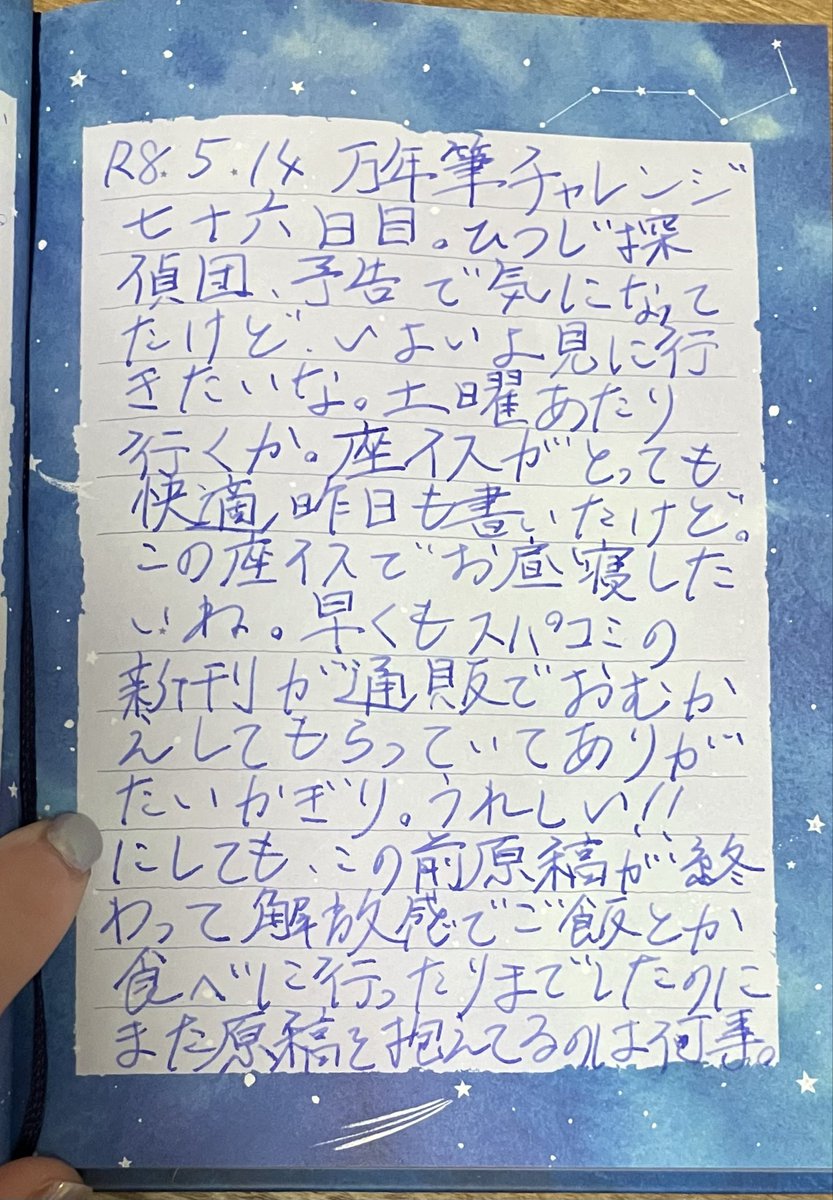 R8.5.14 万年筆チャレンジ
七十六日目。ひつじ探
偵団、予告で気になって
たけど、いよいよ見に行
きたいな。土曜あたり
行くか。座イスがとっても
快適、昨日も書いたけど。
この座イスでお昼寝した
いね。早くもスパコミの
新刊が通販でおむか
えしてもらっていてありが
たいかぎり。うれしい!!
にしても、この前原稿が終
わって解放感でご飯とか
食べに行ったりまでしたのに
また原稿を抱えてるのは何事。